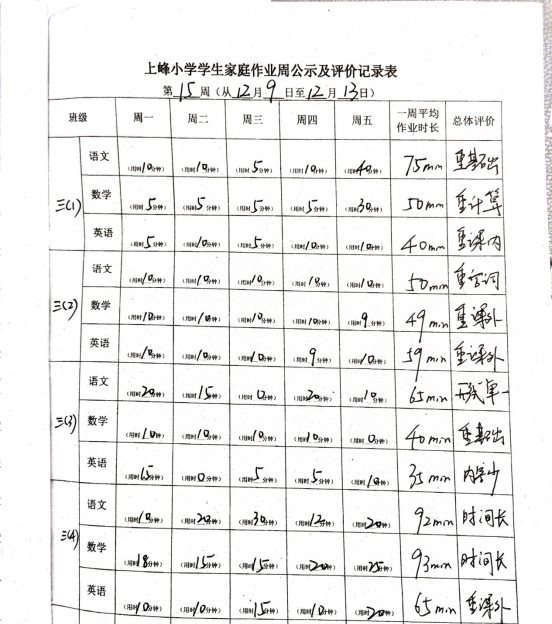 上峰小学学生家庭作业周公示及评价记录表
第 15 周（从 12 月 9 日至 12 月 13 日）
班级 周一 周二 周三 周四 周五 一周平均作业时长 总体评价
三(1) 语文 （用时10分钟） （用时10分钟） （用时5分钟） （用时10分钟） （用时40分钟） 75min 重基础
数学 （用时5分钟） （用时5分钟） （用时5分钟） （用时5分钟） （用时30分钟） 50min 重计算
英语 （用时5分钟） （用时10分钟） （用时5分钟） （用时10分钟） （用时10分钟） 40min 重课内
三(2) 语文 （用时10分钟） （用时10分钟） （用时10分钟） （用时10分钟） （用时10分钟） 50min 重字词
数学 （用时10分钟） （用时10分钟） （用时10分钟） （用时10分钟） （用时9分钟） 49min 重课外
英语 （用时10分钟） （用时10分钟） （用时10分钟） （用时9分钟） （用时10分钟） 59min 重课外
三(3) 语文 （用时20分钟） （用时15分钟） （用时0分钟） （用时20分钟） （用时10分钟） 65min 形式单一
数学 （用时10分钟） （用时10分钟） （用时10分钟） （用时10分钟） （用时0分钟） 40min 重基础
英语 （用时15分钟） （用时0分钟） （用时5分钟） （用时5分钟） （用时10分钟） 35min 内容少
三(4) 语文 （用时10分钟） （用时20分钟） （用时30分钟） （用时12分钟） （用时20分钟） 92min 时间长
数学 （用时18分钟） （用时15分钟） （用时15分钟） （用时20分钟） （用时25分钟） 93min 时间长
英语 （用时10分钟） （用时10分钟） （用时15分钟） （用时10分钟） （用时20分钟） 65min 重课外